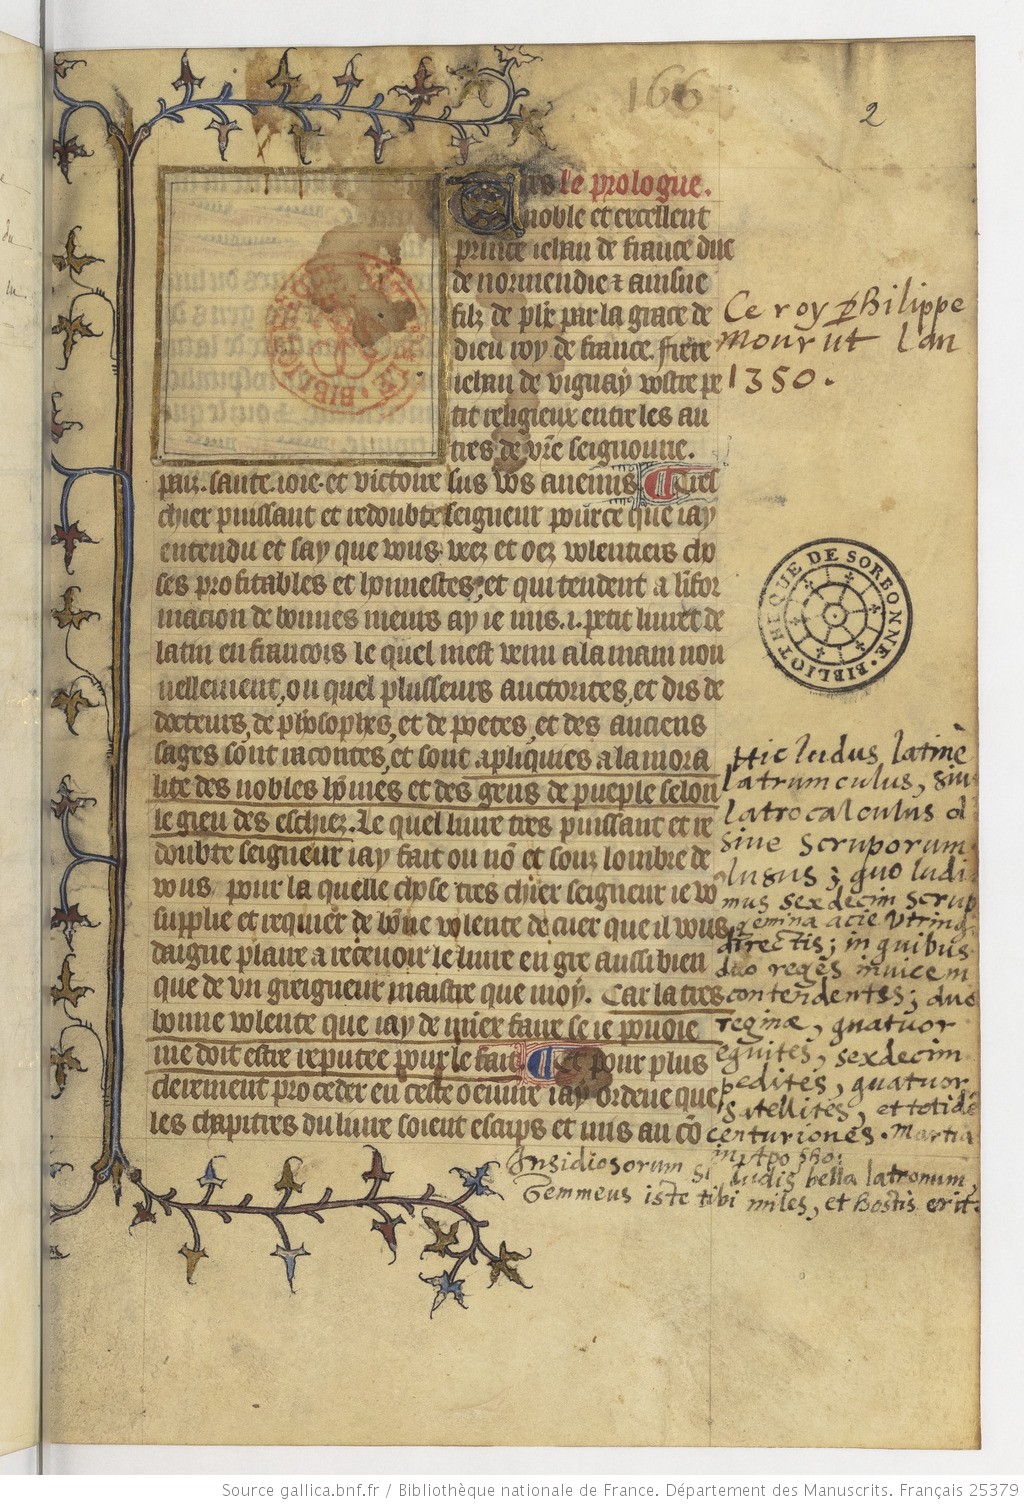 166
2
le prologue.
noble et excellent
prince iehan de france duc
de normendie ⁊ ainsne
filz de phe par la grace de
dieu roy de france. frere
iehan de vignay vostre pe
tit religieux entre les au
tres de vr̄e seignourie.
paiz. sante. ioie. et victoire sus vos anemis. Tres
chier puissant et redoubte seigneur pource que iay
entendu et say que vous veez et oez volentiers cho
ses profitables et honnestes, et qui tendent a linfor
macion de bonnes meurs ay ie mis .i. petit liuret de
latin en francois le quel mest venu a la main nou
uellement, ou quel plusseurs auctorites, et dis de
docteurs, de phylosophes, et de poetes, et des anciens
sages sont racontes, et sont apliquies a la mora
lite des nobles hōmes et des gens de pueple selon
le gieu des eschez. Le quel liure tres puissant et re
doubte seigneur iay fait ou nō et souz lombre de
vous pour la quelle chose tres chier seigneur ie vo
supplie et requier de bōne volente de cuer que il vous
daigne plaire a receuoir le liure en gre aussi bien
que de vn greigneur maistre que moy. Car la tres
bonne volente que iay de miex faire se ie pouoie
me doit estre reputee pour le fait. Et pour plus
clerement proceder en ceste oeuure iay ordene que
les chapitres du liure soient escrips et mis au cō
Ce roy Philippe
mourut lan
1350.
BIBLIOTHEQUE DE SORBONNE
Hic ludus latinè
latrumculus, siue
latrocalculus
siue scruporum
lusus; quo ludi
mus sexdecim scrup
gemina acie utrinq
directis; in quibus
duo reges inuicem
contendentes; duo
reginæ, quatuor
equites, sexdecim
pedites, quatuor
satellites, et totidē
centuriones. Martia
Insidiosorum si ludis bella latronum,
Gemmeus iste tibi miles, et hostis erit.
Source gallica.bnf.fr / Bibliothèque nationale de France. Département des Manuscrits. Français 25379